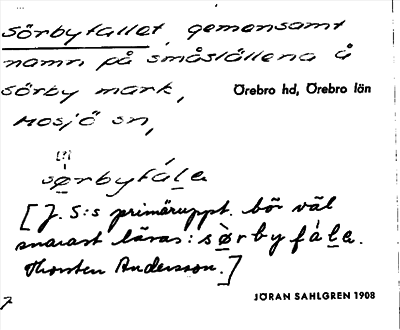 Sörbyfallet, gemensamt
namn på småställena å
Sörby mark,
Örebro hd, Örebro län
Mosjö sn,
[?]
sørbyfála
[J. S:s primäruppt. bör väl
snarast läsas: sø̀rbyfála.
Thorsten Andersson.]
7
JÖRAN SAHLGREN 1908